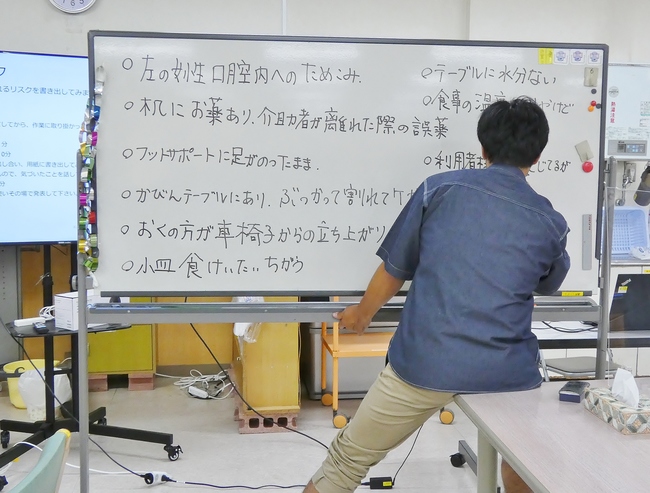 るリスクを書き出してみま
してから、作業に取り掛か
用紙に書き出して
ので、気づいたことを話し
びその場で発表して下さい
○左の女性 口腔内へのためこみ.
○机に お薬あり、介助者が離れた際の誤薬
○フットサポートに足がのったまま.
○かびんテーブルにあり、ぶつかって割れてケガ
○おくの方が車椅子からの立ち上がり
○小皿 食けいたいちがう
○テーブルに水分ない
○食事の温度 やけど
○利用者様 じてるが